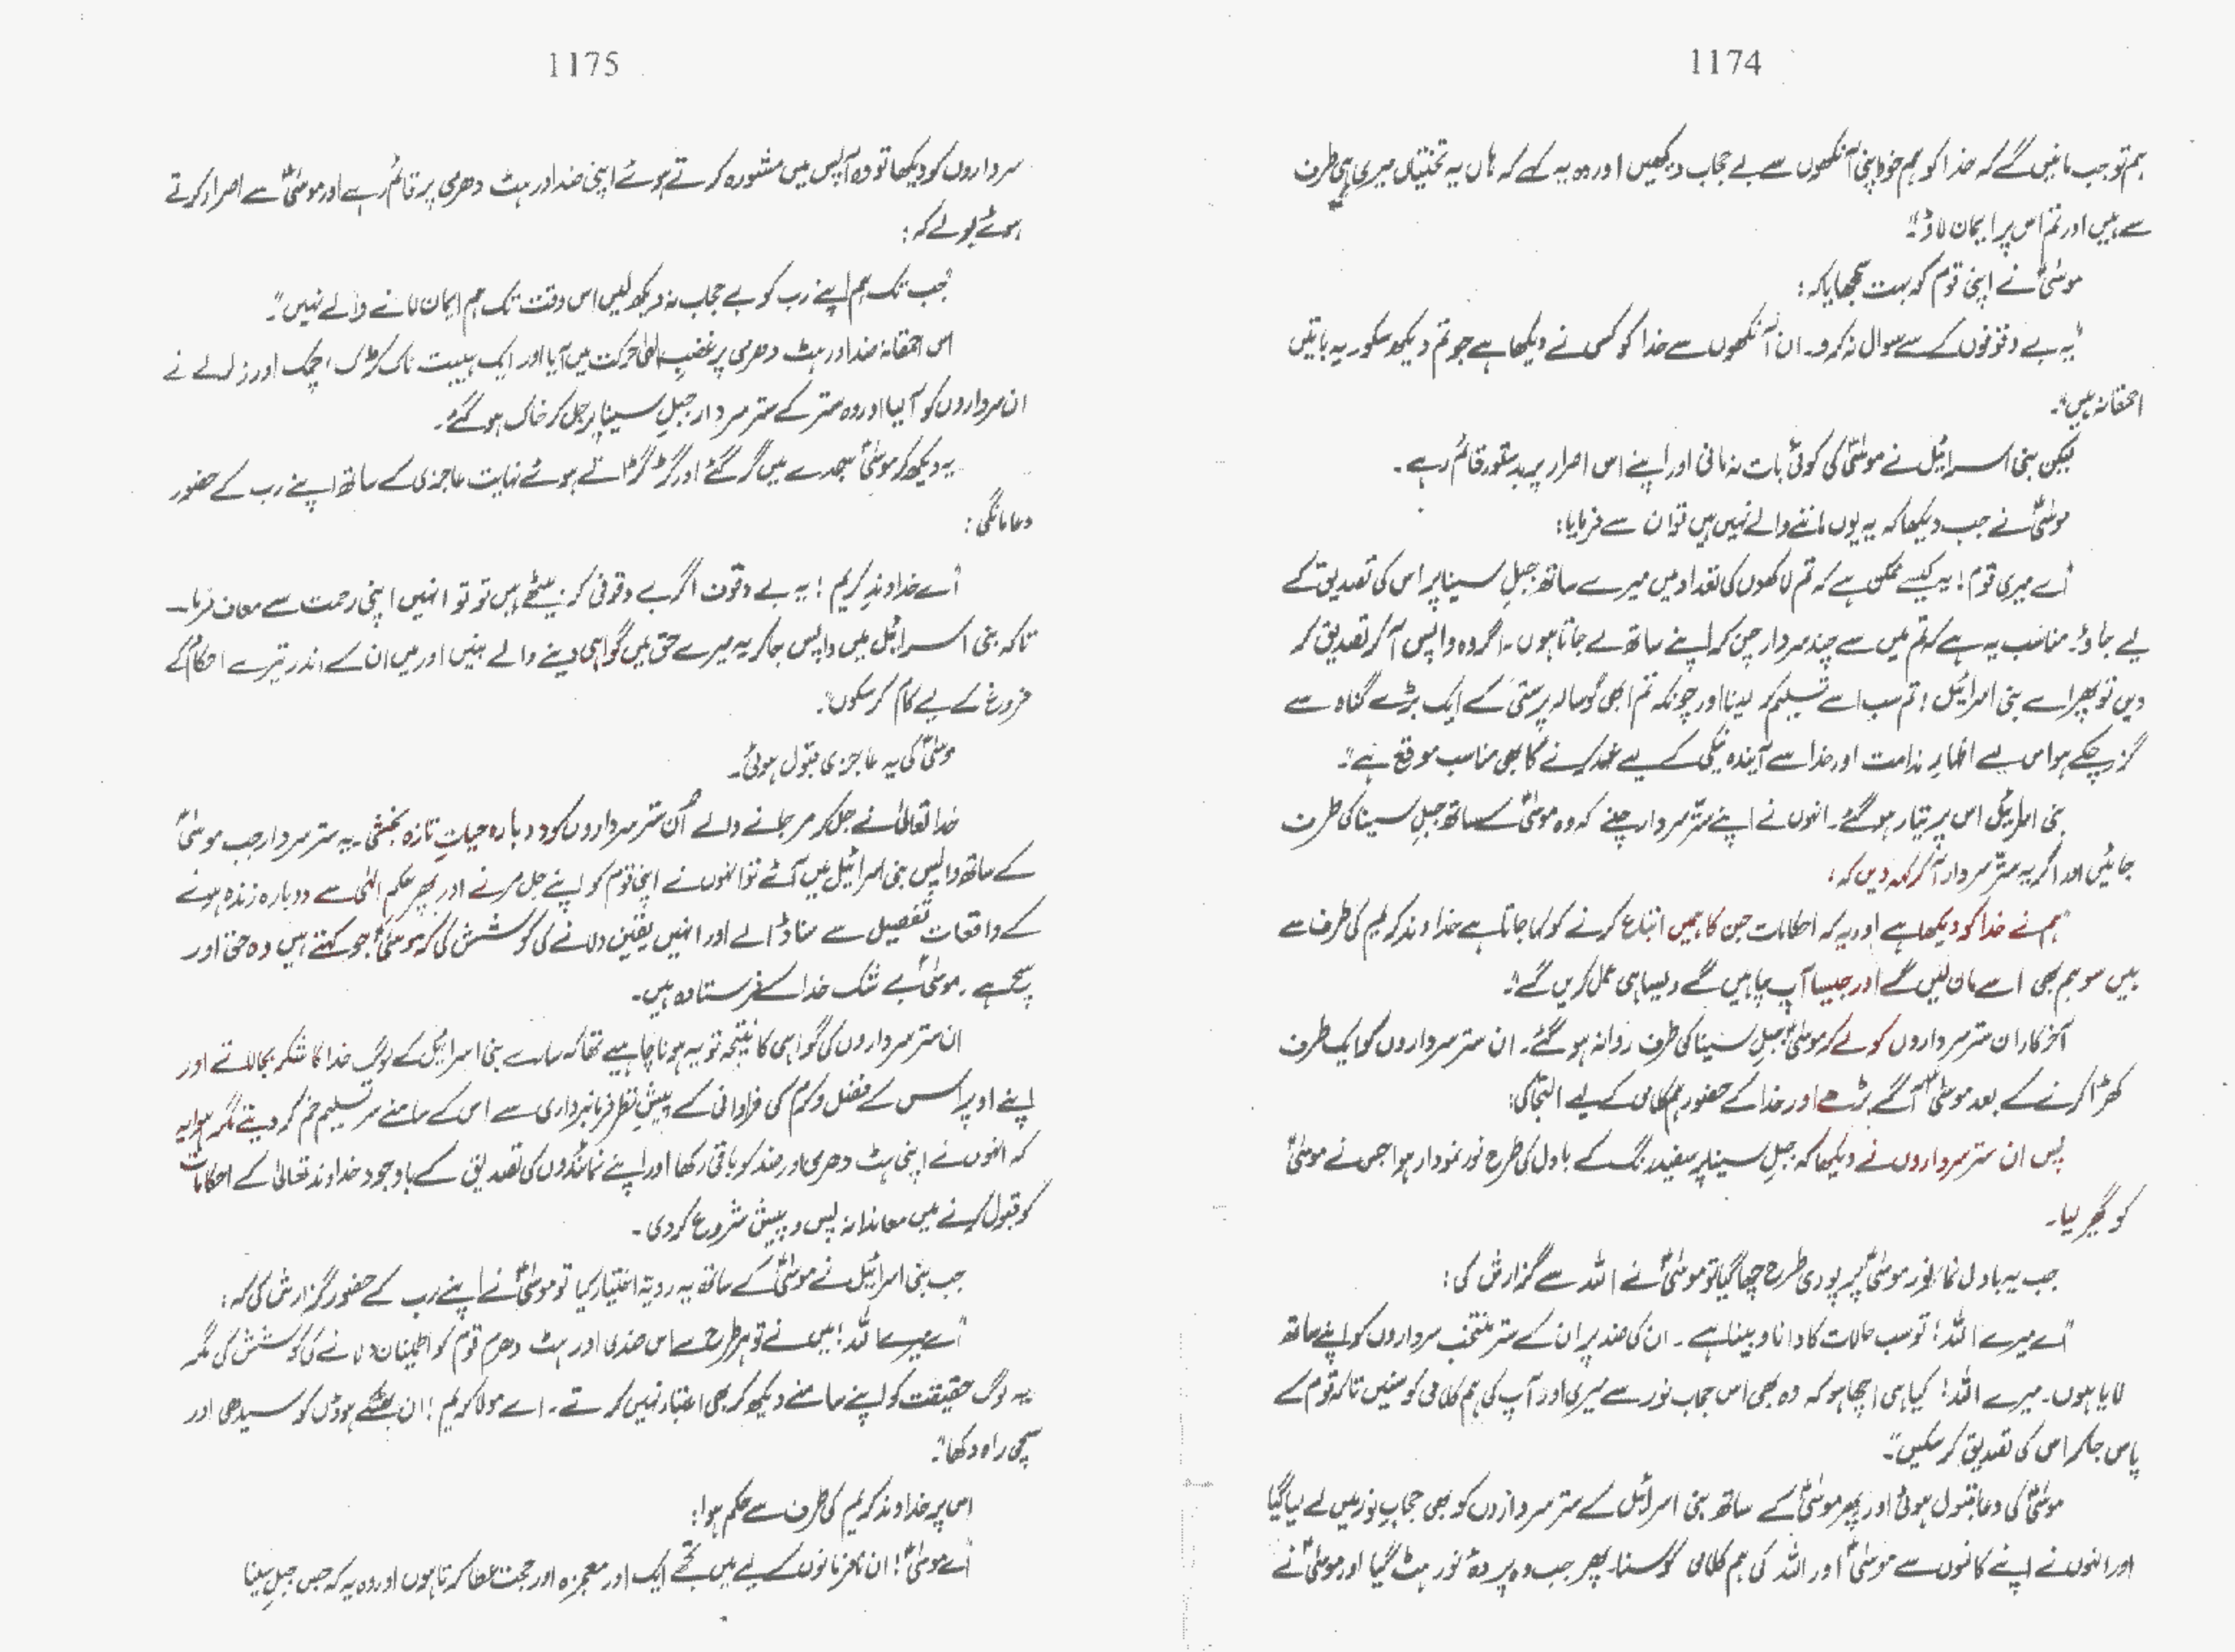 1174
ہم تو جب مانیں گے کہ خدا کو ہم خود اپنی آنکھوں سے بے حجاب دیکھیں اور وہ یہ کہے کہ ہاں یہ تختیاں میری ہی طرف
سے ہیں اور تم اس پر ایمان لاؤ"۔
موسیٰؑ نے اپنی قوم کو بہت سمجھایا کہ:
"یہ بے وقوفوں کے سے سوال نہ کرو۔ ان آنکھوں سے خدا کو کس نے دیکھا ہے جو تم دیکھ سکو۔ یہ باتیں
احمقانہ ہیں"۔
لیکن بنی اسرائیل نے موسیٰؑ کی کوئی بات نہ مانی اور اپنے اس اصرار پر بدستور قائم رہے۔
موسیٰؑ نے جب دیکھا کہ یہ یوں ماننے والے نہیں ہیں تو ان سے فرمایا:
"اے میری قوم! یہ کیسے ممکن ہے کہ تم لاکھوں کی تعداد میں میرے ساتھ جبلِ سینا پر اس کی تصدیق کے
لیے جاؤ۔ مناسب یہ ہے کہ تم میں سے چند سردار چن کر اپنے ساتھ لے جاتا ہوں۔ اگر وہ واپس آ کر تصدیق کر
دیں تو پھر اے بنی اسرائیل! تم سب اسے تسلیم کر لینا اور چونکہ تم ابھی گوسالہ پرستی کے ایک بڑے گناہ سے
گزر چکے ہو اس لیے اظہارِ ندامت اور خدا سے آیندہ نیکی کے لیے عہد کرنے کا بھی مناسب موقع ہے"۔
بنی اسرائیل اس پر تیار ہو گئے۔ انہوں نے اپنے ستّر سردار چنے کہ وہ موسیٰؑ کے ساتھ جبلِ سینا کی طرف
جائیں اور اگر یہ ستّر سردار آ کر کہہ دیں کہ:
"ہم نے خدا کو دیکھا ہے اور یہ کہ احکامات جن کا ہمیں اتباع کرنے کو کہا جاتا ہے خداوند کریم کی طرف سے
ہیں سو ہم بھی اسے مان لیں گے اور جیسا آپ چاہیں گے ویسا ہی عمل کریں گے"۔
آخر کار ان ستر سرداروں کو لے کر موسیٰؑ جبلِ سینا کی طرف روانہ ہو گئے۔ ان ستر سرداروں کو ایک طرف
کھڑا کرنے کے بعد موسیٰؑ آگے بڑھے اور خدا کے حضور ہم کلامی کے لیے التجا کی:
پس ان ستر سرداروں نے دیکھا کہ جبلِ سینا پر سفید رنگ کے بادل کی طرح نور نمودار ہوا جس نے موسیٰؑ
کو گھیر لیا۔
جب یہ بادل نما نور موسیٰؑ پر پوری طرح چھا گیا تو موسیٰؑ نے اللہ سے گزارش کی:
"اے میرے اللہ! تو سب حالات کا دانا و بینا ہے۔ ان کی ضد پر ان کے ستر منتخب سرداروں کو اپنے ساتھ
لایا ہوں۔ میرے اللہ! کیا ہی اچھا ہو کہ وہ بھی اس حجابِ نور سے میری اور آپ کی ہم کلامی کو سنیں تاکہ قوم کے
پاس جا کر اس کی تصدیق کر سکیں"۔
موسیٰؑ کی دعا قبول ہوئی اور پھر موسیٰؑ کے ساتھ بنی اسرائیل کے ستر سرداروں کو بھی حجابِ نور میں لے لیا گیا
اور انہوں نے اپنے کانوں سے موسیٰؑ اور اللہ کی ہم کلامی کو سنا۔ پھر جب وہ پردۂ نور ہٹ گیا اور موسیٰؑ نے
1175
سرداروں کو دیکھا تو وہ آپس میں مشورہ کرتے ہوئے اپنی ضد اور ہٹ دھرمی پر قائم رہے اور موسیٰؑ سے اصرار کرتے
ہوئے بولے کہ:
"جب تک ہم اپنے رب کو بے حجاب نہ دیکھ لیں اس وقت تک ہم ایمان لانے والے نہیں"۔
اس احمقانہ ضد اور ہٹ دھرمی پر غضبِ الٰہی حرکت میں آیا اور ایک ہیبت ناک کڑک، چمک اور زلزلے نے
ان سرداروں کو آ لیا اور وہ ستر کے ستر سردار جبلِ سینا پر جل کر خاک ہو گئے۔
یہ دیکھ کر موسیٰؑ سجدے میں گر گئے اور گڑگڑاتے ہوئے نہایت عاجزی کے ساتھ اپنے رب کے حضور
دعا مانگی:
"اے خداوندِ کریم! یہ بے وقوف اگر بے وقوفی کر بیٹھے ہیں تو تو انہیں اپنی رحمت سے معاف فرما۔
تاکہ بنی اسرائیل میں واپس جا کر یہ میرے حق میں گواہی دینے والے بنیں اور میں ان کے اندر تیرے احکام کے
فروغ کے لیے کام کر سکوں"۔
موسیٰؑ کی یہ عاجزی قبول ہوئی۔
خدا تعالیٰ نے جل کر مر جانے والے اُن ستر سرداروں کو دوبارہ حیاتِ تازہ بخشی۔ یہ ستر سردار جب موسیٰؑ
کے ساتھ واپس بنی اسرائیل میں آئے تو انہوں نے اپنی قوم کو اپنے جل مرنے اور پھر حکمِ الٰہی سے دوبارہ زندہ ہونے
کے واقعات تفصیل سے سنا ڈالے اور انہیں یقین دلانے کی کوشش کی کہ موسیٰؑ جو کہتے ہیں وہ حق اور
سچ ہے۔ موسیٰؑ بے شک خدا کے فرستادہ ہیں۔
ان ستر سرداروں کی گواہی کا نتیجہ تو یہ ہونا چاہیے تھا کہ سارے بنی اسرائیل کے لوگ خدا کا شکر بجا لاتے اور
اپنے اوپر اس کے فضل و کرم کی فراوانی کے پیشِ نظر فرمانبرداری سے اس کے سامنے سرِ تسلیم خم کر دیتے مگر ہوا یہ
کہ انہوں نے اپنی ہٹ دھرمی اور ضد کو باقی رکھا اور اپنے نمائندوں کی تصدیق کے باوجود خداوند تعالیٰ کے احکامات
کو قبول کرنے میں معاندانہ پس و پیش شروع کر دی۔
جب بنی اسرائیل نے موسیٰؑ کے ساتھ یہ رویّہ اختیار کیا تو موسیٰؑ نے اپنے رب کے حضور گزارش کی کہ:
"اے میرے اللہ! میں نے تو ہر طرح سے اس ضدی اور ہٹ دھرم قوم کو اطمینان دلانے کی کوشش کی مگر
یہ لوگ حقیقت کو اپنے سامنے دیکھ کر بھی اعتبار نہیں کرتے۔ اے مولا کریم! ان بھٹکے ہوؤں کو سیدھی اور
سچی راہ دکھا"۔
اس پر خداوند کریم کی طرف سے حکم ہوا:
"اے موسیٰؑ! ان نافرمانوں کے لیے میں تجھے ایک اور معجزہ اور حجت عطا کرتا ہوں اور وہ یہ کہ جس جبلِ سینا